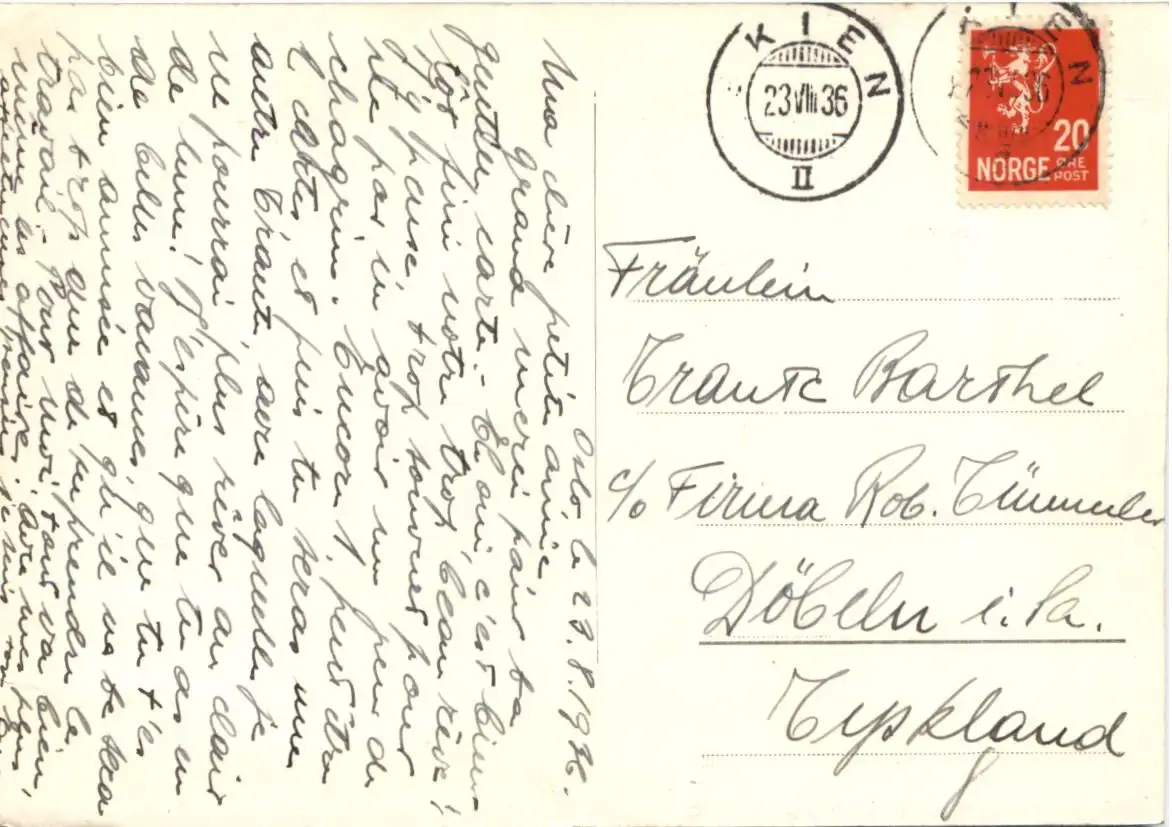 Oslo, le 23.8.1936.
Ma chère petite amie,
grand merci pour ta
gentille carte.- Eh oui, c'est bien-
tôt fini notre trop beau rêve!
J'y pense trop souvent pour
ne pas en avoir un peu de
chagrin. Encore 1 peut être
2 dates, et puis tu seras une
autre Traute avec laquelle je
ne pourrai plus rêver au clair
de lune! J'espère que tu as eu
de belles vacances, que tu t'es
bien amusée et qu'il ne te sera
pas trop dur de reprendre le
travail.- Pour moi, tout va bien,
même les affaires! Avec mes
KIEN
23 VIII 36
II
KIEN
NORGE
20
ØRE
POST
Fräulein
Traute Barthel
c/o Firma Rob. Tümmler
Döbeln i. Sa.
Tyskland